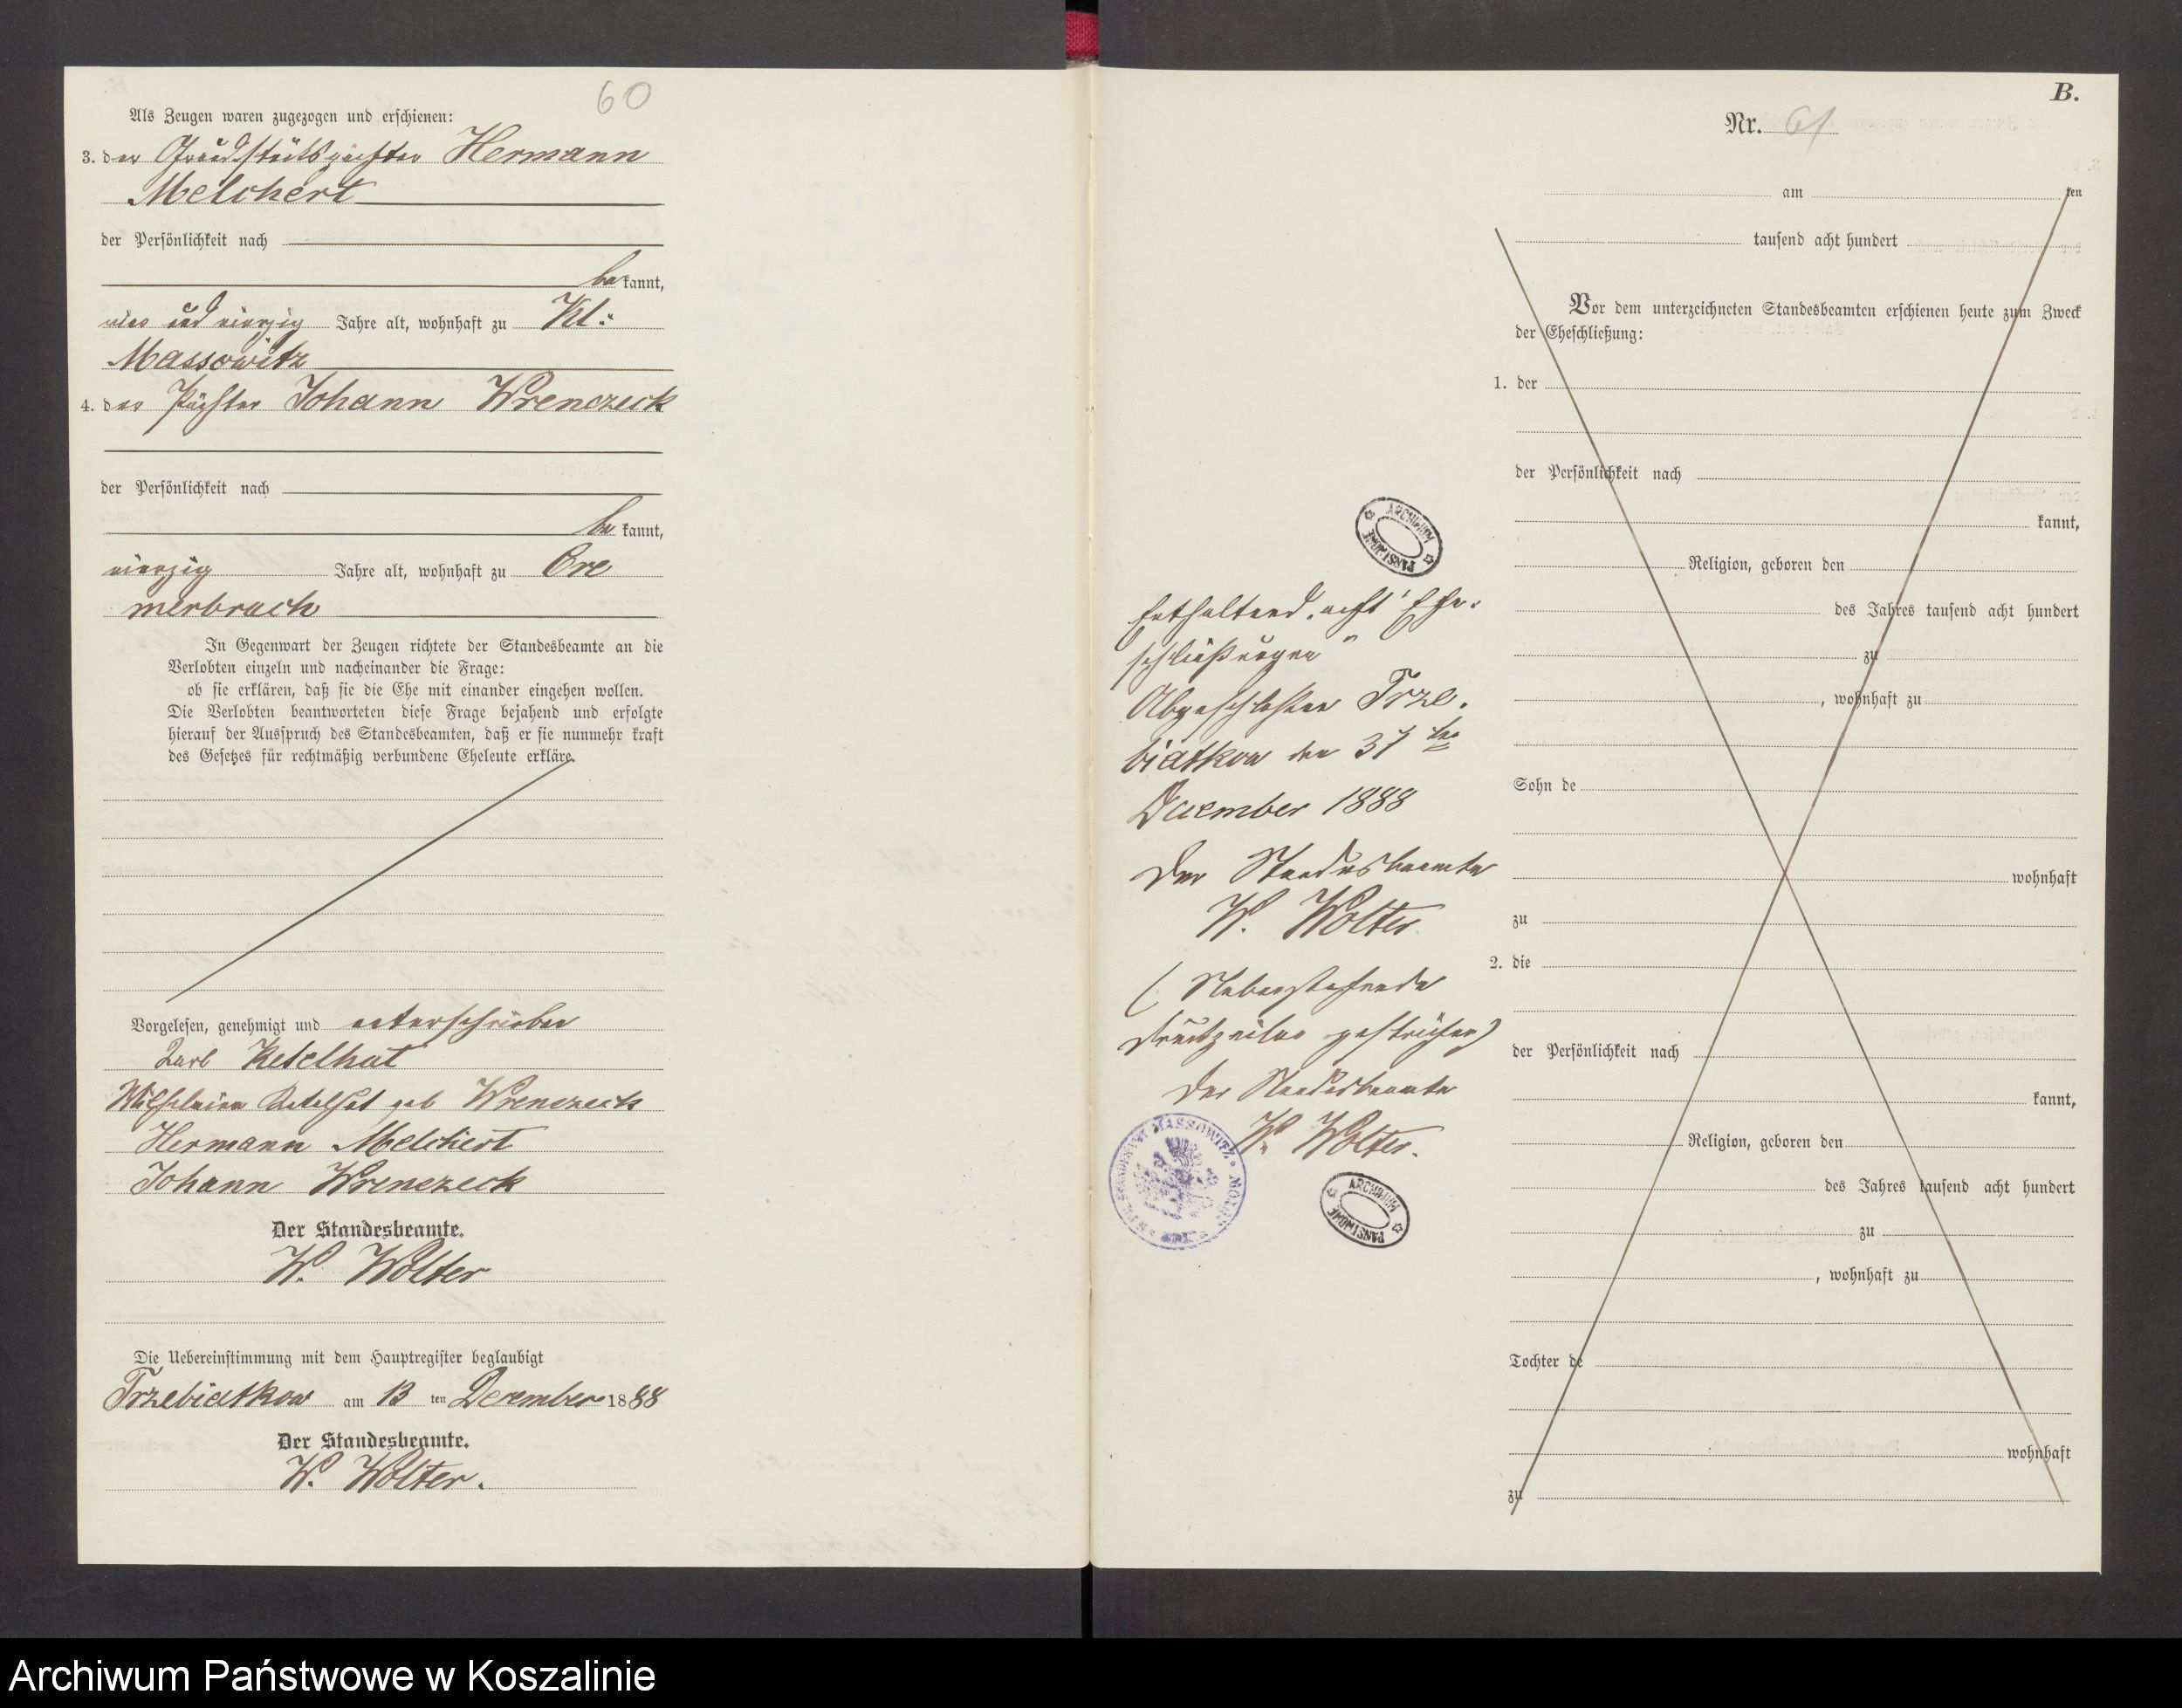 60
Als Zeugen waren zugezogen und erschienen:
3. der Grundstückspächter Hermann
Melchert
der Persönlichkeit nach
be kannt,
vier und vierzig Jahre alt, wohnhaft zu Kl:
Massowitz
4. der Pächter Johann Wrenczeck
der Persönlichkeit nach
be kannt,
vierzig Jahre alt, wohnhaft zu Cre
merbruch
In Gegenwart der Zeugen richtete der Standesbeamte an die
Verlobten einzeln und nacheinander die Frage:
ob sie erklären, daß sie die Ehe mit einander eingehen wollen.
Die Verlobten beantworteten diese Frage bejahend und erfolgte
hierauf der Ausspruch des Standesbeamten, daß er sie nunmehr kraft
des Gesetzes für rechtmäßig verbundene Eheleute erkläre.
Vorgelesen, genehmigt und unterschrieben
Karl Ketelhut
Wilhelmine Ketelhut geb Wrenczeck
Hermann Melchert
Johann Wrenczeck
Der Standesbeamte.
W. Wolter
Die Uebereinstimmung mit dem Hauptregister beglaubigt
Trzebiatkow am 13 ten December 1888
Der Standesbeamte.
W. Wolter.
ARCHIWUM PAŃSTWOWE
Enthaltend „acht" Ehe-
schließungen"
Abgeschlossen Trze.
biatkow den 31 ten
December 1888
Der Standesbeamte
W. Wolter
(Nebenstehende
Druckzeilen gestrichen)
Der Standesbeamte
W. Wolter.
MASSOWITZ
ARCHIWUM PAŃSTWOWE
B.
Nr. 61
am ten
tausend acht hundert
Vor dem unterzeichneten Standesbeamten erschienen heute zum Zweck
der Eheschließung:
1. der
der Persönlichkeit nach
kannt,
Religion, geboren den
des Jahres tausend acht hundert
zu
, wohnhaft zu
Sohn de
wohnhaft
zu
2. die
der Persönlichkeit nach
kannt,
Religion, geboren den
des Jahres tausend acht hundert
zu
, wohnhaft zu
Tochter de
wohnhaft
zu
Archiwum Państwowe w Koszalinie